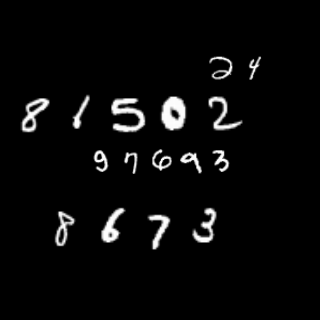 24
81502
97693
8673